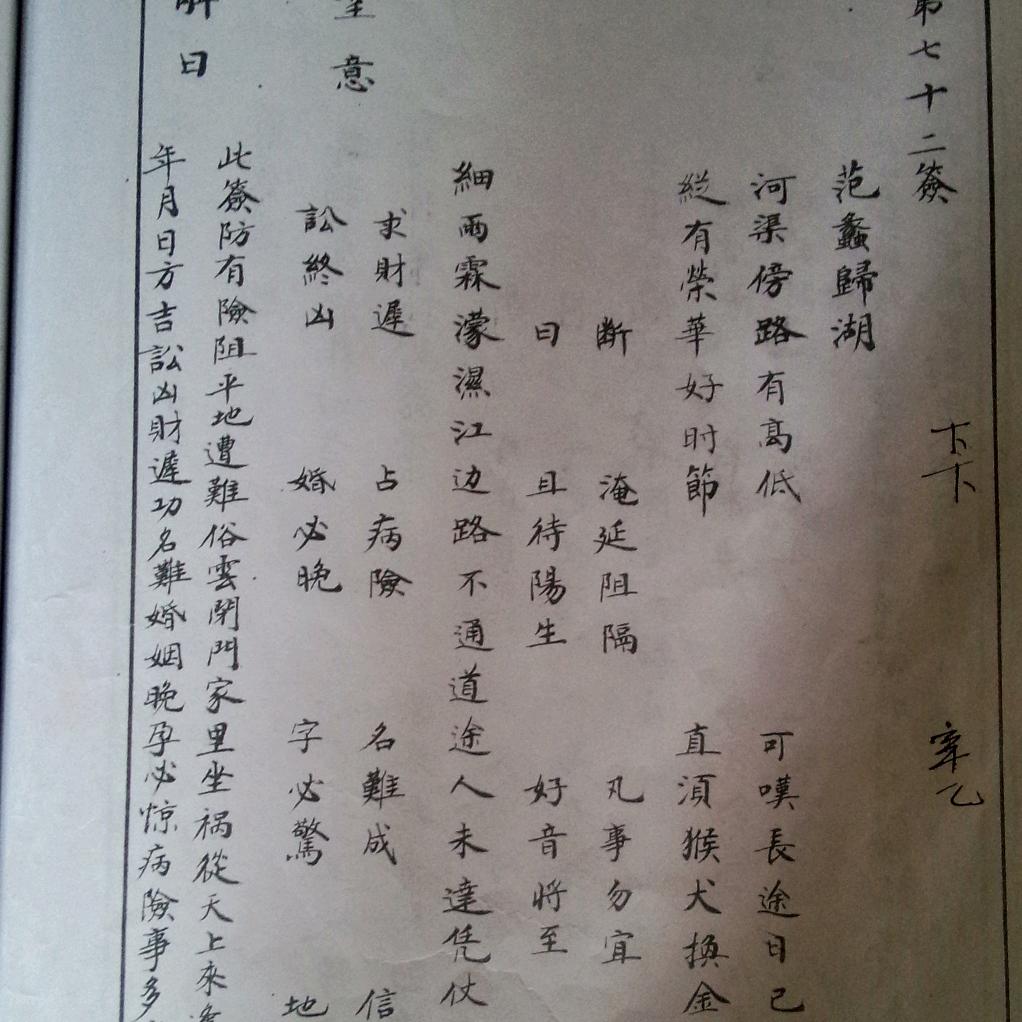 第七十二簽
卞 辛乙
范蠡歸湖
河渠傍路有高低 可嘆長途日已
縱有榮華好时節 直須猴犬換金
斷 淹延阻隔 凡事勿宜
曰 且待陽生 好音將至
細雨霖濛濕江边路不通道途人未達凭仗
求財遲 占病險 名難成 信
訟終凶 婚必晚 字必驚 地
聖意
解曰
此簽防有險阻平地遭難俗雲閉門家里坐祸從天上來逢
年月日方吉訟凶財遲功名難婚姻晚孕必惊病險事多